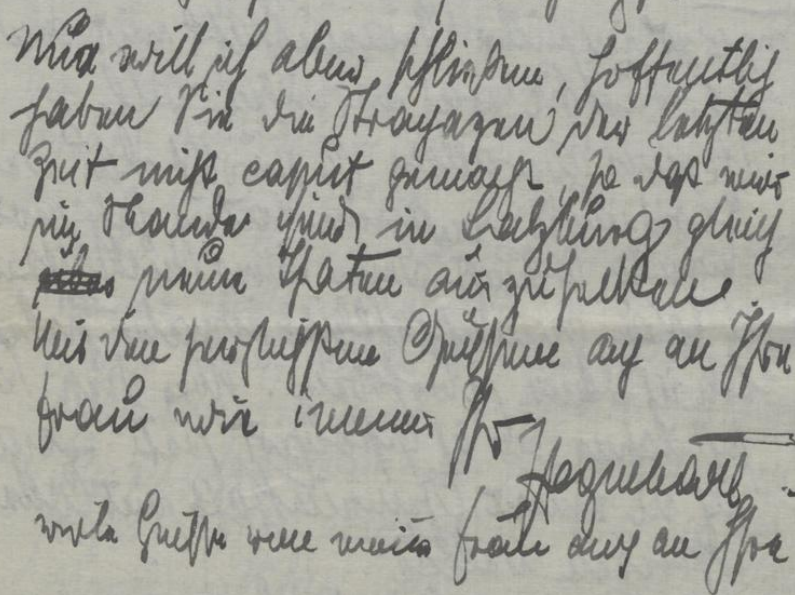 Nun will ich aber schließen, hoffentlich
haben Sie die Strapazen der letzten
Zeit nicht caput gemacht, so daß wir
im Stande sind in Salzburg gleich
neue Thaten auszuhecken.
Mit den herzlichsten Grüssen auch an Ihre
Frau wie immer Ihr
viele Grüsse von meiner Frau auch an Ihre